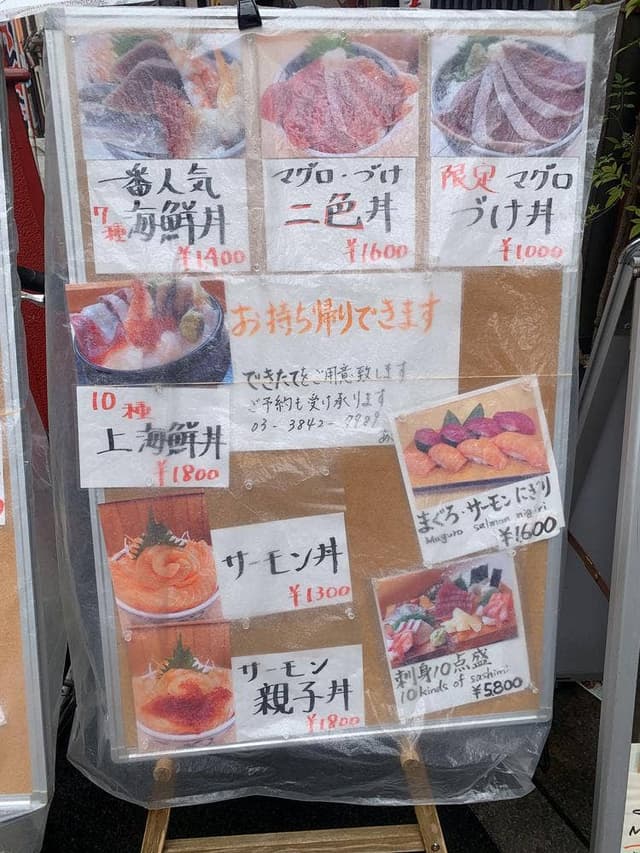 一番人気
7種 海鮮丼
¥1400
マグロ・づけ
二色丼
¥1600
限定 マグロ
づけ丼
¥1000
お持ち帰りできます
できたてをご用意致します
ご予約も受け承ります
03-3842-7989
10種
上海鮮丼
¥1800
まぐろ・サーモンにぎり
Maguro salmon nigiri
¥1600
サーモン丼
¥1300
刺身10点盛
10kinds of sashimi
¥5.800
サーモン
親子丼
¥1800